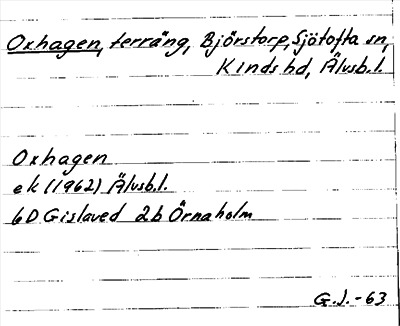 Oxhagen, terräng, Björstorp, Sjötofta sn,
Kinds hd, Älvsb.l.
Oxhagen
ek (1962) Älvsb.l.
6D Gislaved 2b Örnaholm
G.J.-63